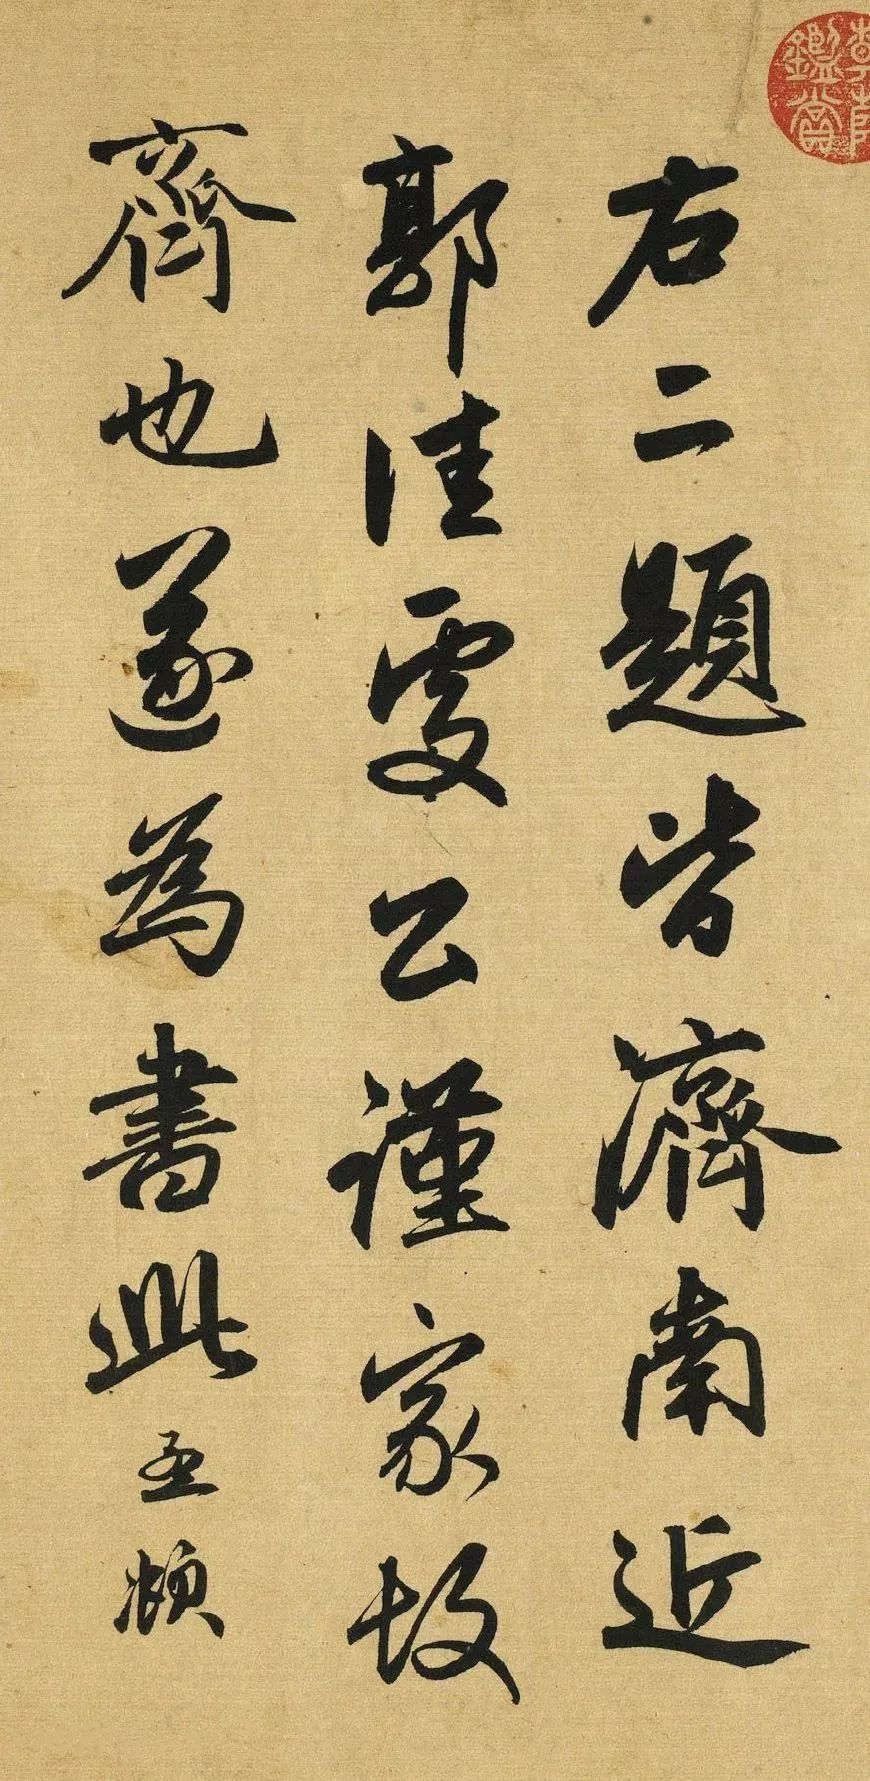 右二題皆濟南近
郭佳處公謹家故
齊也遂為書此孟頫